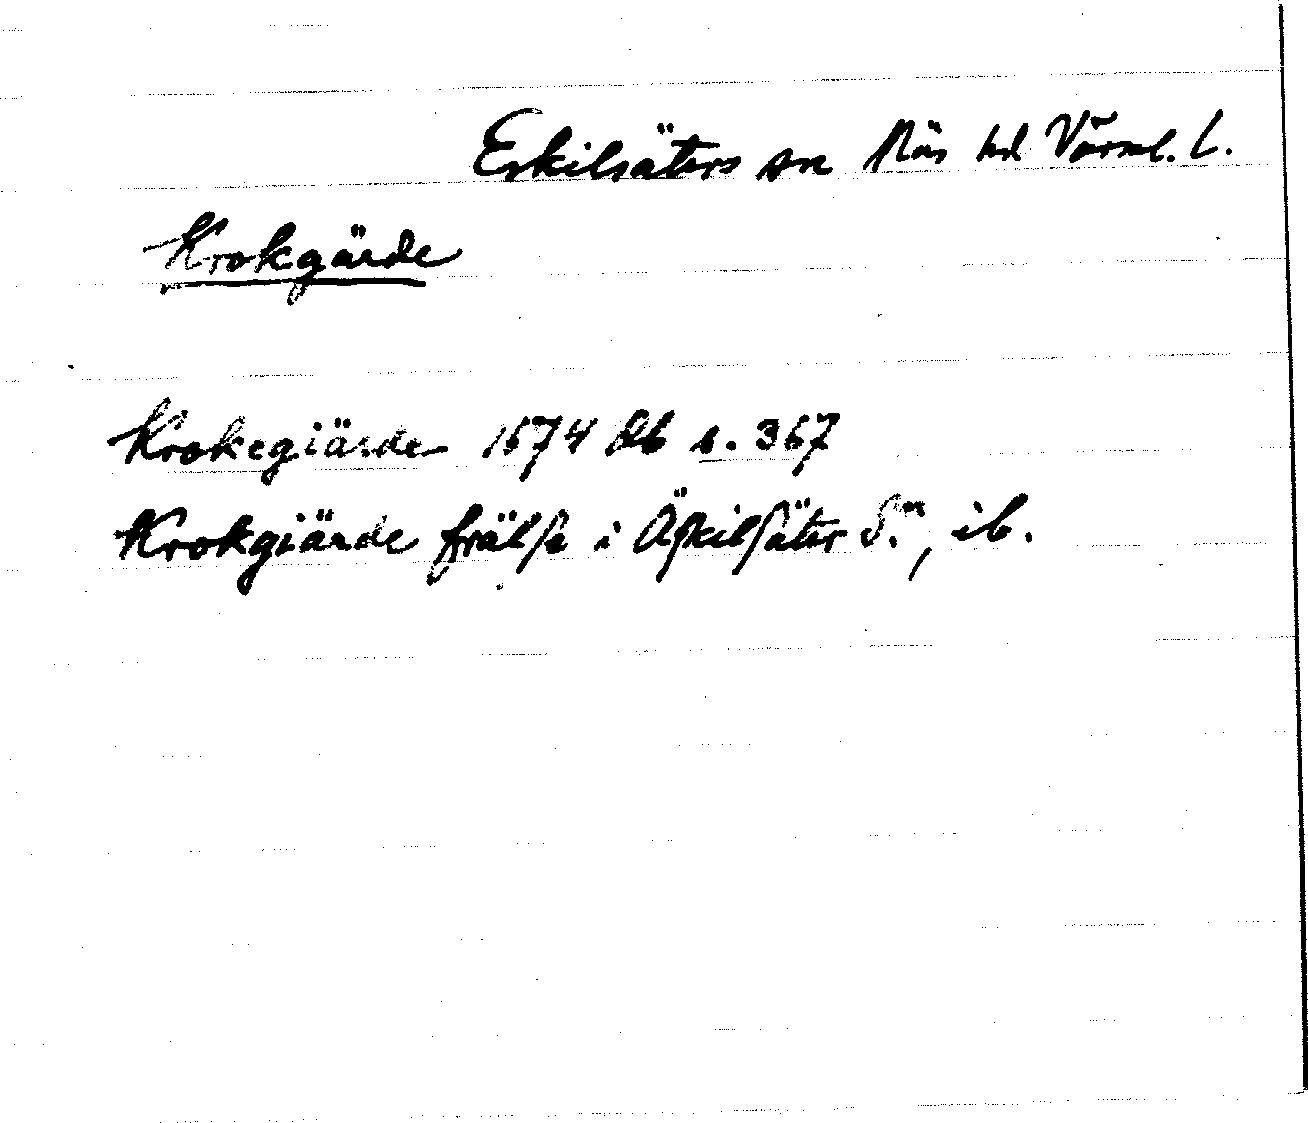 Eskilsäters sn Näs hd Värml. l.
Krokgärde
Krokegiärde 1674 Db s. 367
Krokgiärde frälſe i Äſkilſäter S:n, ib.